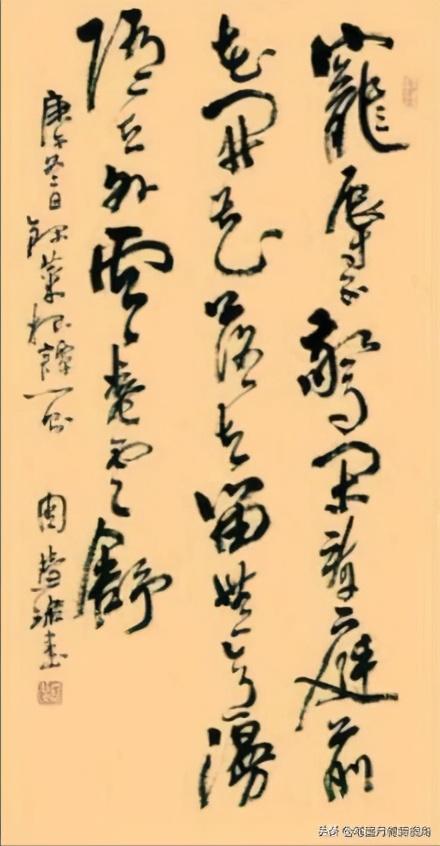 寵辱不驚閑看庭前
花開花落去留無意漫
隨天外雲卷雲舒
庚午冬日錄菜根譚一則 周慧珺書
头条